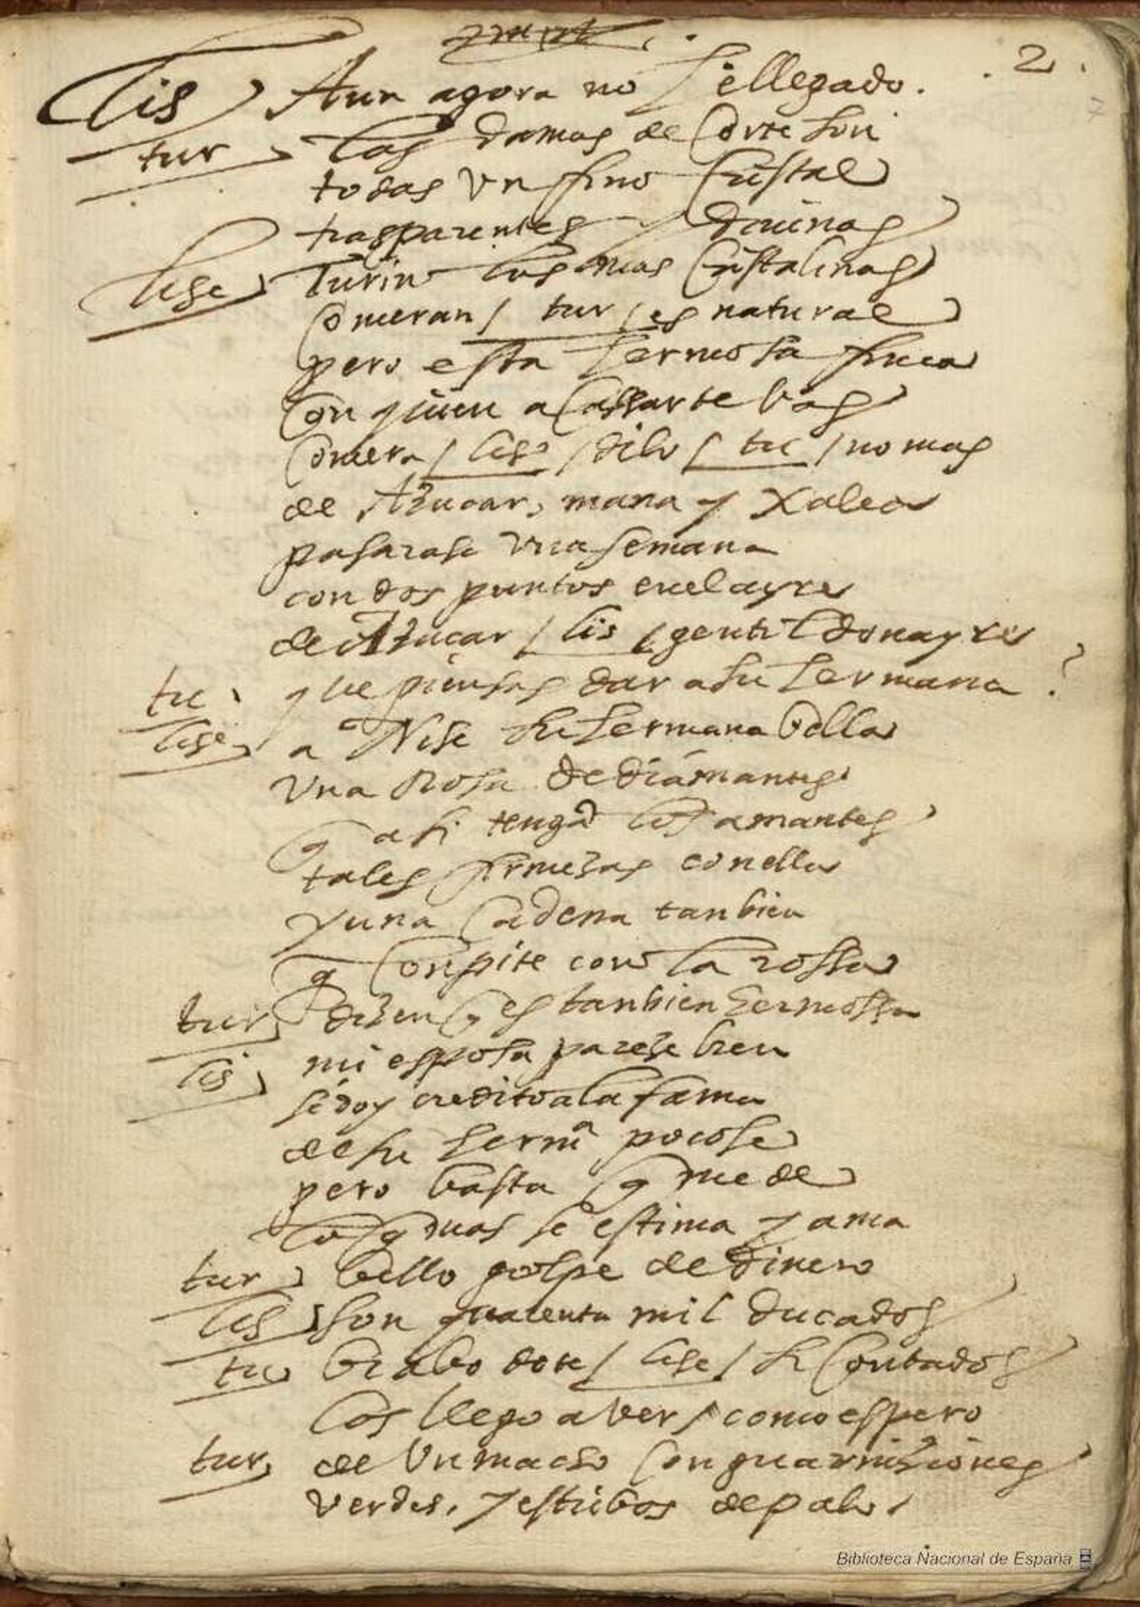 2
Lis Aun agora no he llegado.
tur las damas de Corte son
todas un fino Cristal
trasparentes y diuinas
lise Turin las mas Cristalinas
Comeran / tur / es natural
pero esta hermosa finea
con quien a Cassarte bas
Comera / lise / dilo / tu / no mas
de Azucar, mana y Xalea
pasarase una semana
con dos puntos en el ayre
de Azucar / lis / gentil donayre
tu que piensas dar a su hermana?
lise a Nise su hermana bella
una Rosa de diamantes
q asi tengã los amantes
tales firmezas con ella
y una Cadena tanbien
q Conpite con la rossa
tur dizen q es tanbien hermossa
lis mi esposa pareze bien
si doy credito a la fama
de su hermª poco se
pero basta q me de
lo q mas se estima y ama
tur bello golpe de dinero
lis son quarenta mil ducados
tu brabo dote / lise / si Contados
los llego a ver, como espero
tur de un macho Con guarniziones
verdes, y estribos de palo,
Biblioteca Nacional de España